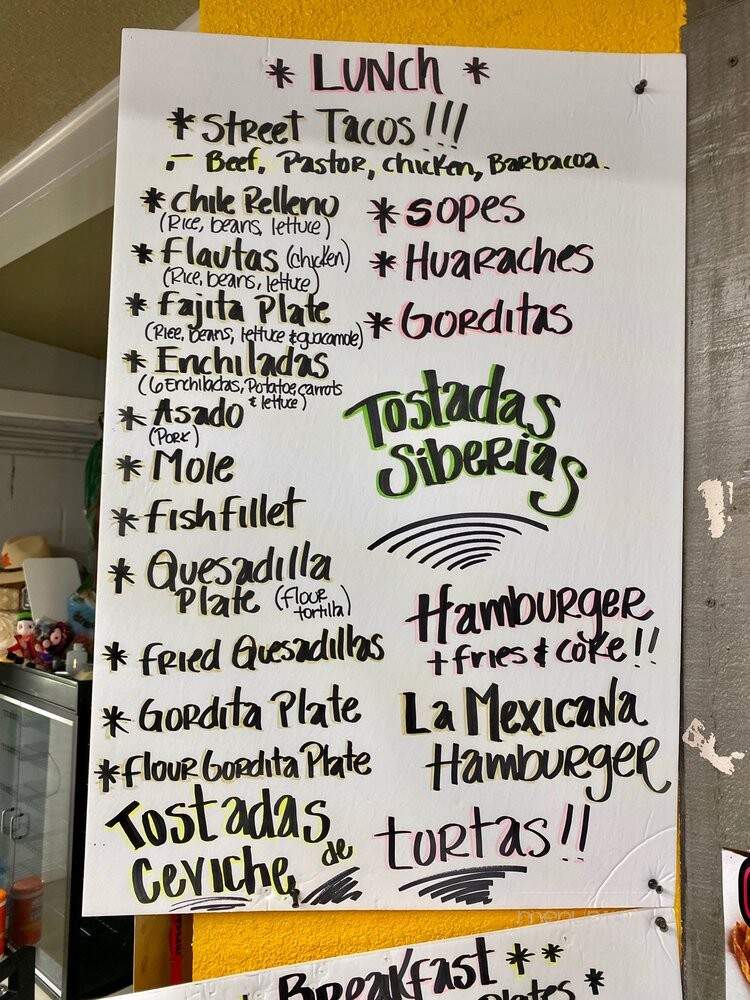 * Lunch *
* Street Tacos!!!
- Beef, Pastor, chicken, Barbacoa.
* Chile Relleno
(Rice, beans, lettuce)
* Flautas (chicken)
(Rice, beans, lettuce)
* Fajita Plate
(Rice, beans, lettuce & guacamole)
* Enchiladas
(6 Enchiladas, Potatoe, carrots
& lettuce)
* Asado
(Pork)
* Mole
* fish fillet
* Quesadilla
Plate (flour
tortilla)
* fried Quesadillas
* Gordita Plate
* flour Gordita Plate
Tostadas
de
Ceviche
* Sopes
* Huaraches
* Gorditas
Tostadas
Siberias
Hamburger
+ fries & coke!!
La Mexicana
Hamburger
tortas!!
Breakfast **
Plates *